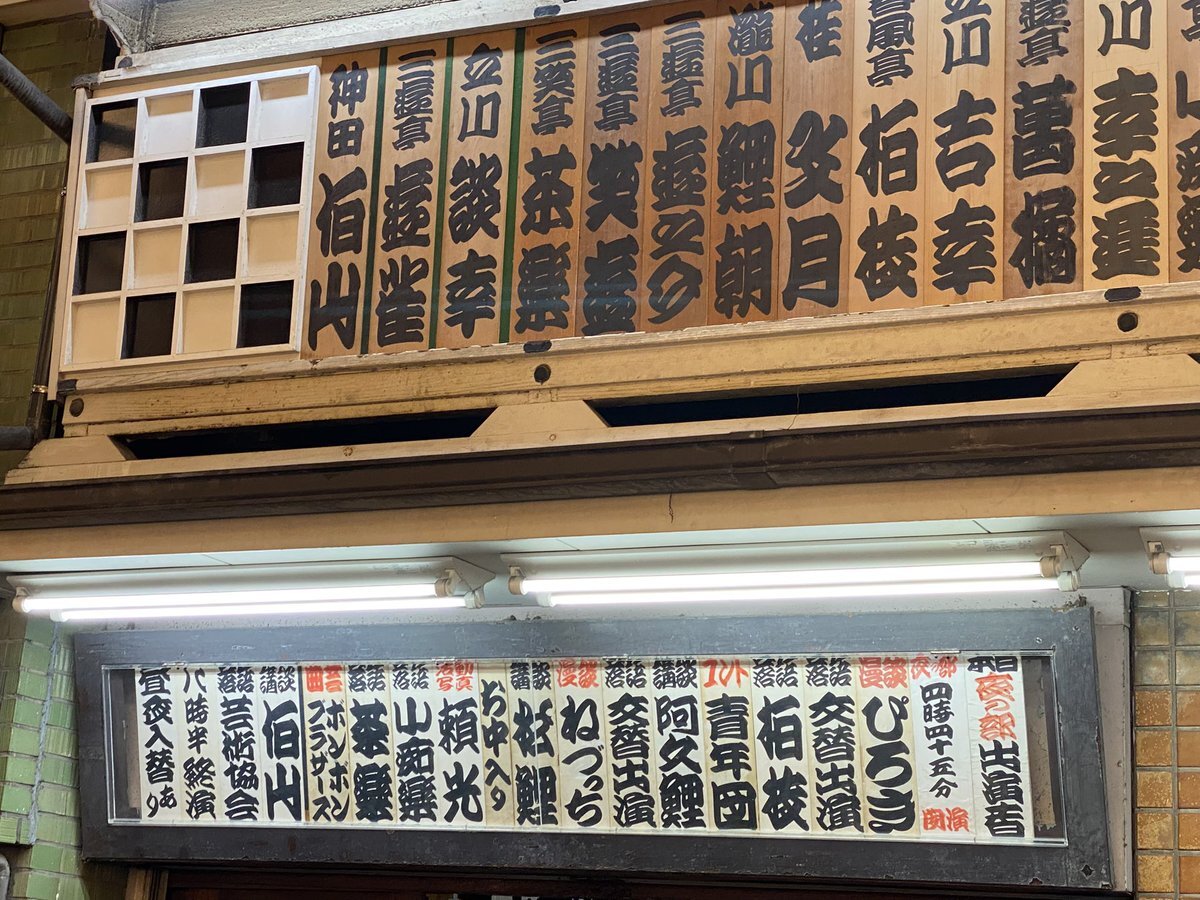 川 幸之進
三遊亭 萬橘
立川 吉幸
春風亭 柏枝
桂 文月
瀧川 鯉朝
三遊亭 遊之介
三遊亭 笑遊
三笑亭 茶樂
立川 談幸
三遊亭 遊雀
神田 伯山
本日夜の部出演者
夜の部 四時四十五分 開演
漫談 ぴろき
落語 交替出演
落語 柏枝
コント 青年団
講談 阿久鯉
落語 交替出演
漫談 ねづっち
講談 松鯉
お中入り
活動写真 頼光
落語 小痴樂
落語 茶樂
曲芸 ボンボンブラザース
講談 伯山
落語芸術協会
八時半終演
昼夜入替あり